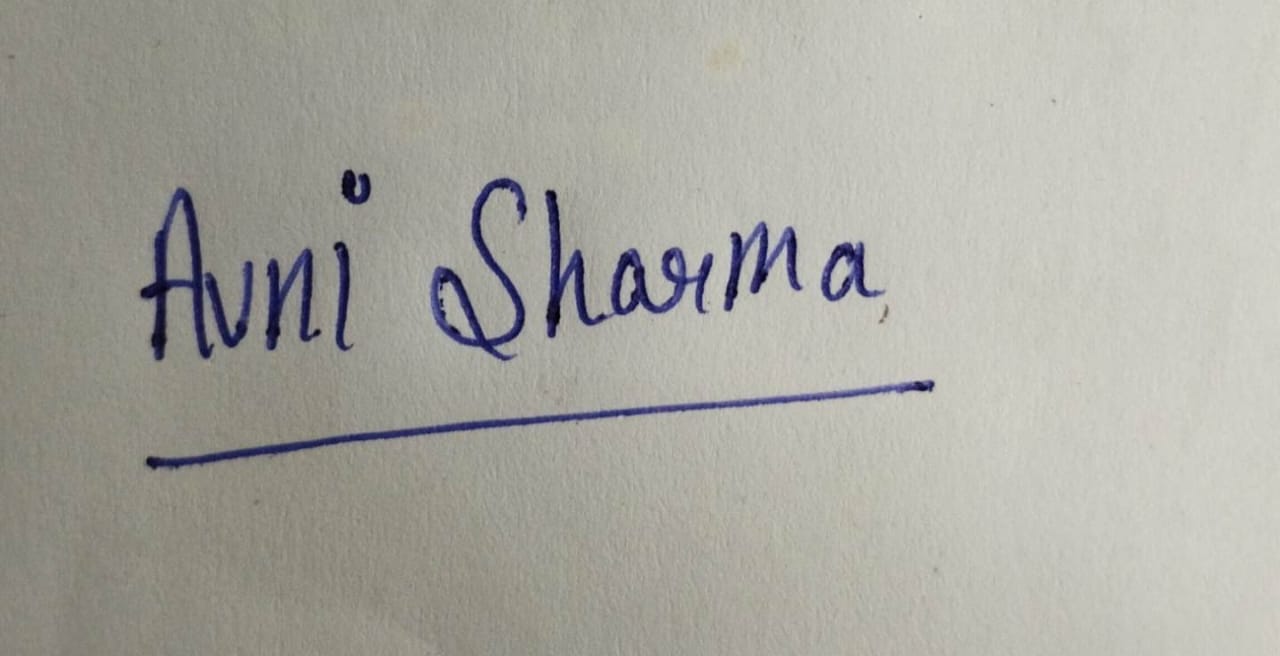 Avni Sharma